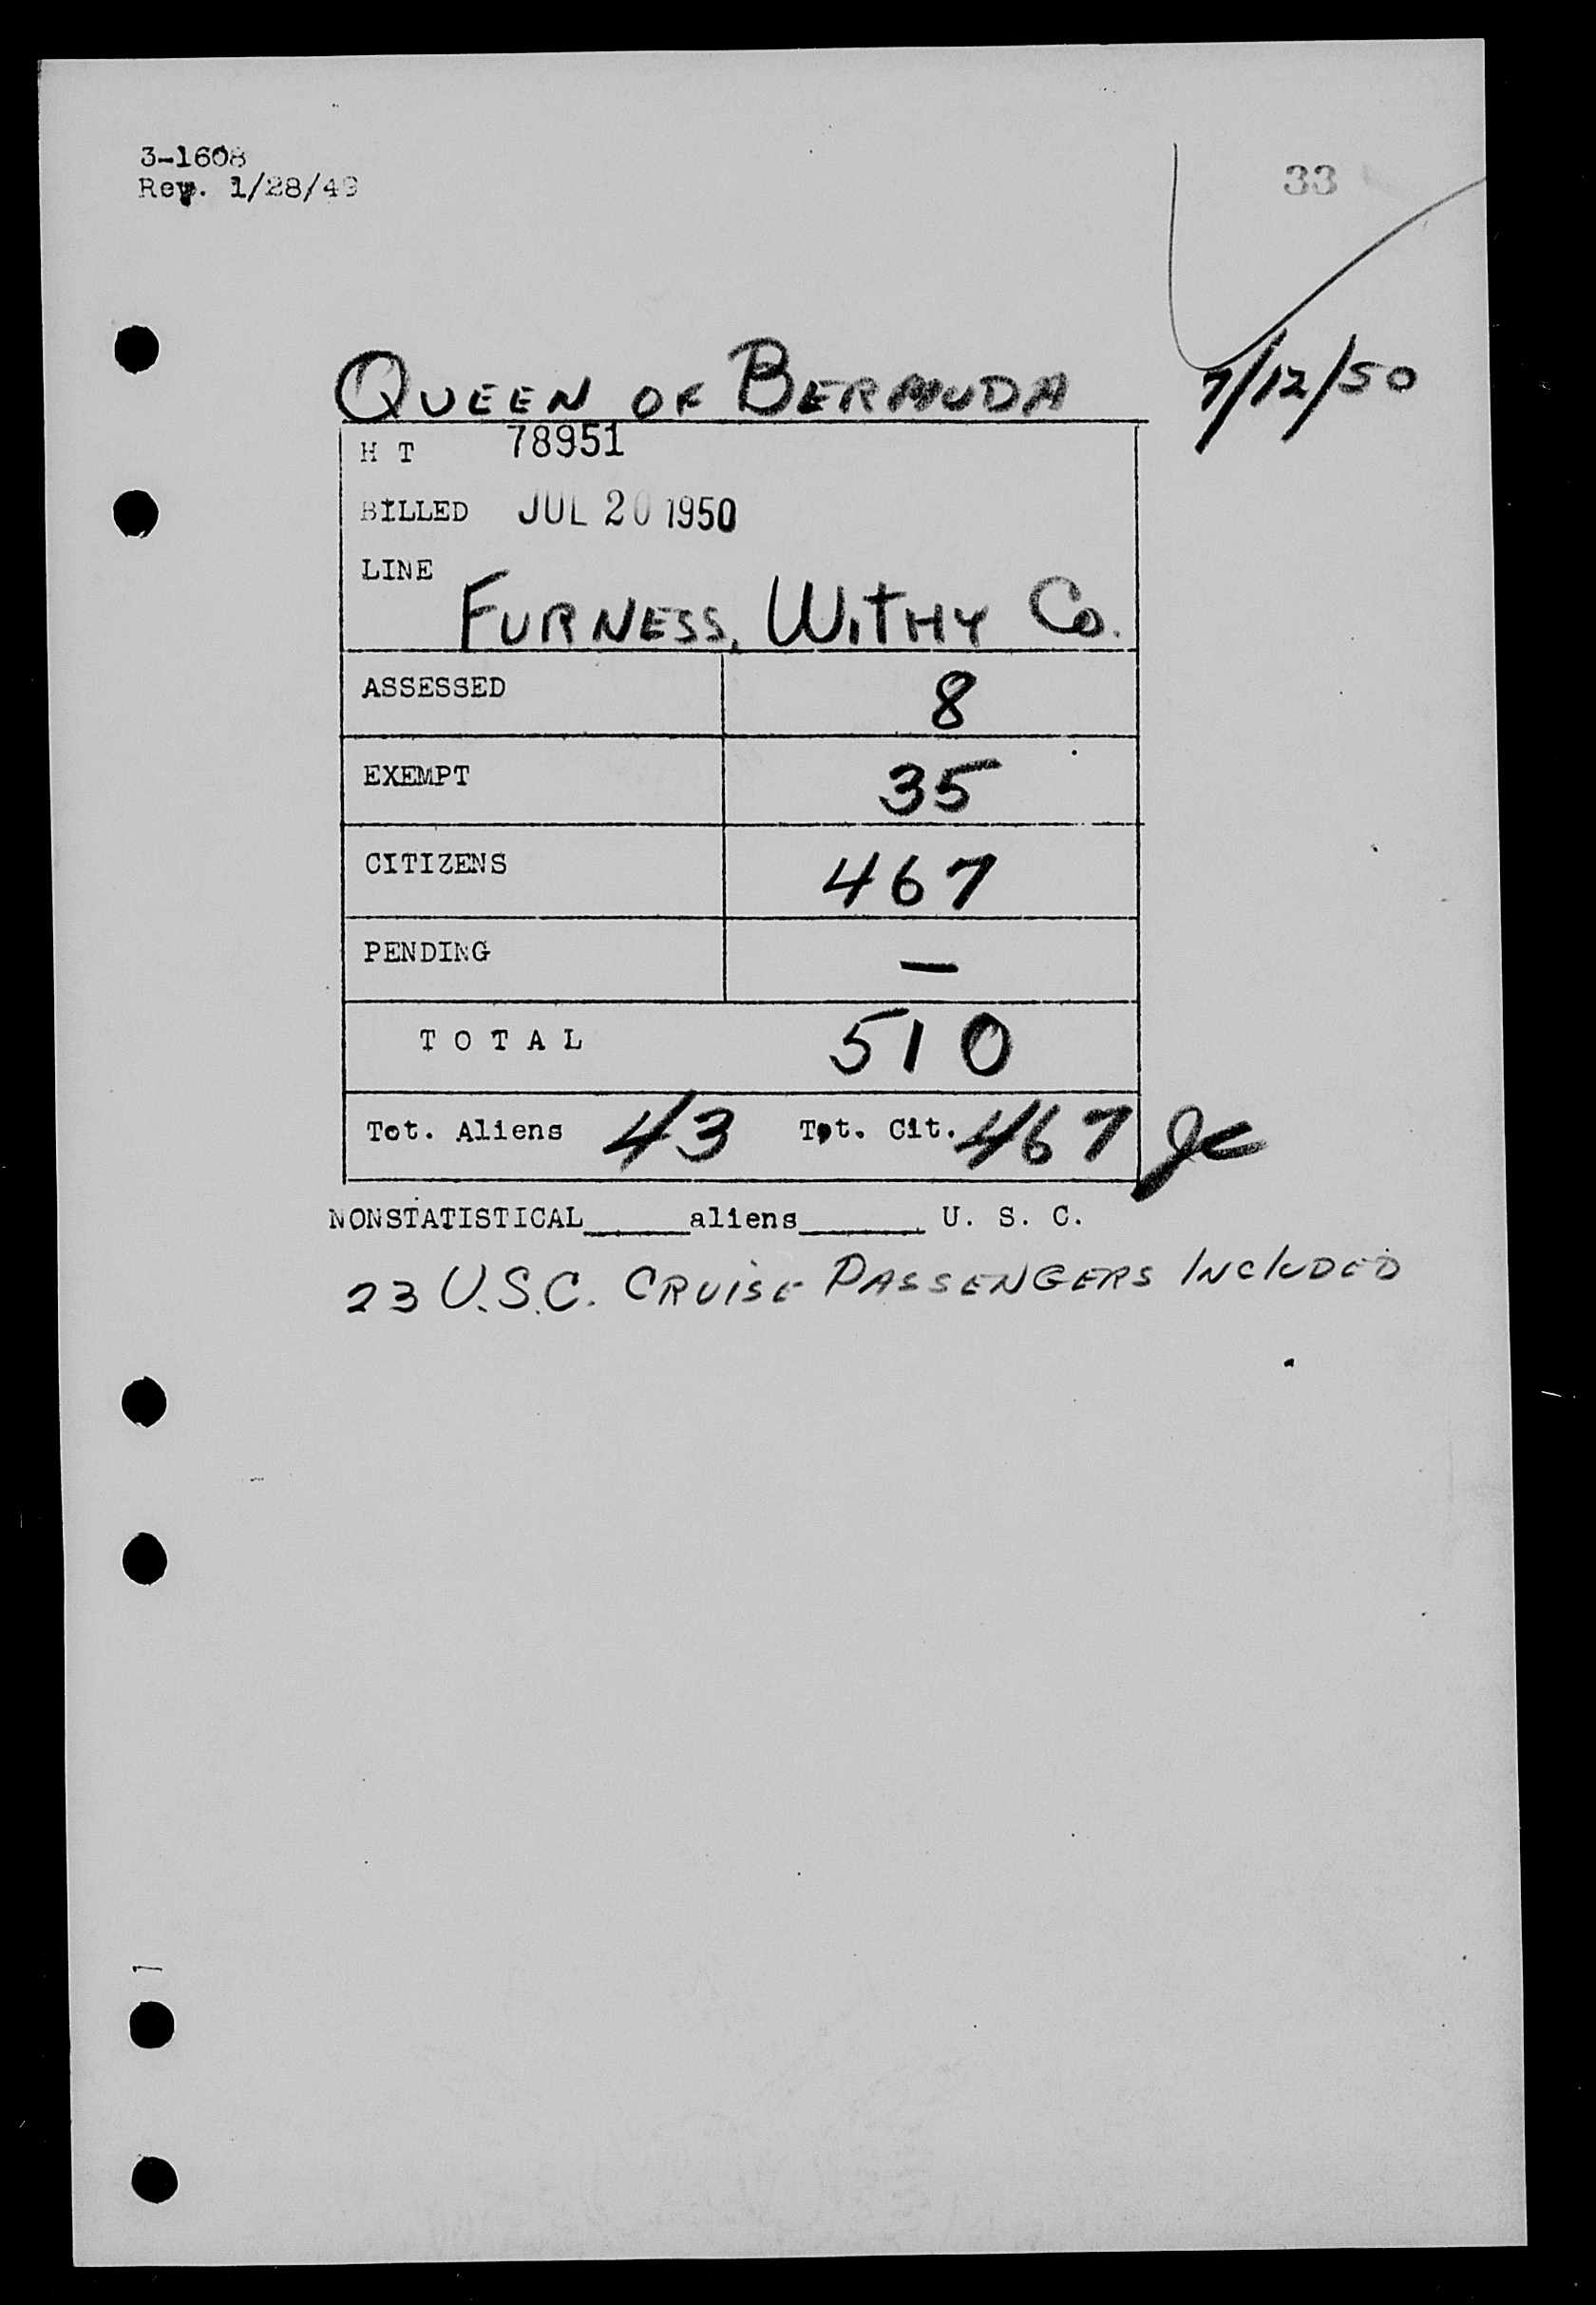 3-1608
Rev. 1/28/49
33
QUEEN OF BERMUDA 7/12/50
H T 78951
BILLED JUL 20 1950
LINE
FURNESS, WITHY CO.
ASSESSED 8
EXEMPT 35
CITIZENS 467
PENDING —
T O T A L 510
Tot. Aliens 43 Tot. Cit. 467 JC
NONSTATISTICAL______aliens_______ U. S. C.
23 U.S.C. CRUISE PASSENGERS INCLUDED